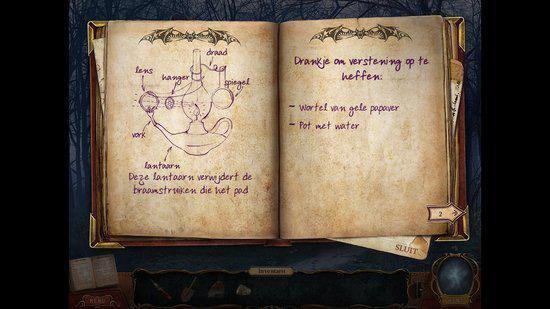 draad
lens
hanger
spiegel
vork
lantaarn
Deze lantaarn verwijdert de
braamstruiken die het pad
Drankje om verstening op te
heffen:
- Wortel van gele papaver
- Pot met water
2
SLUIT
Inventaris
MENU